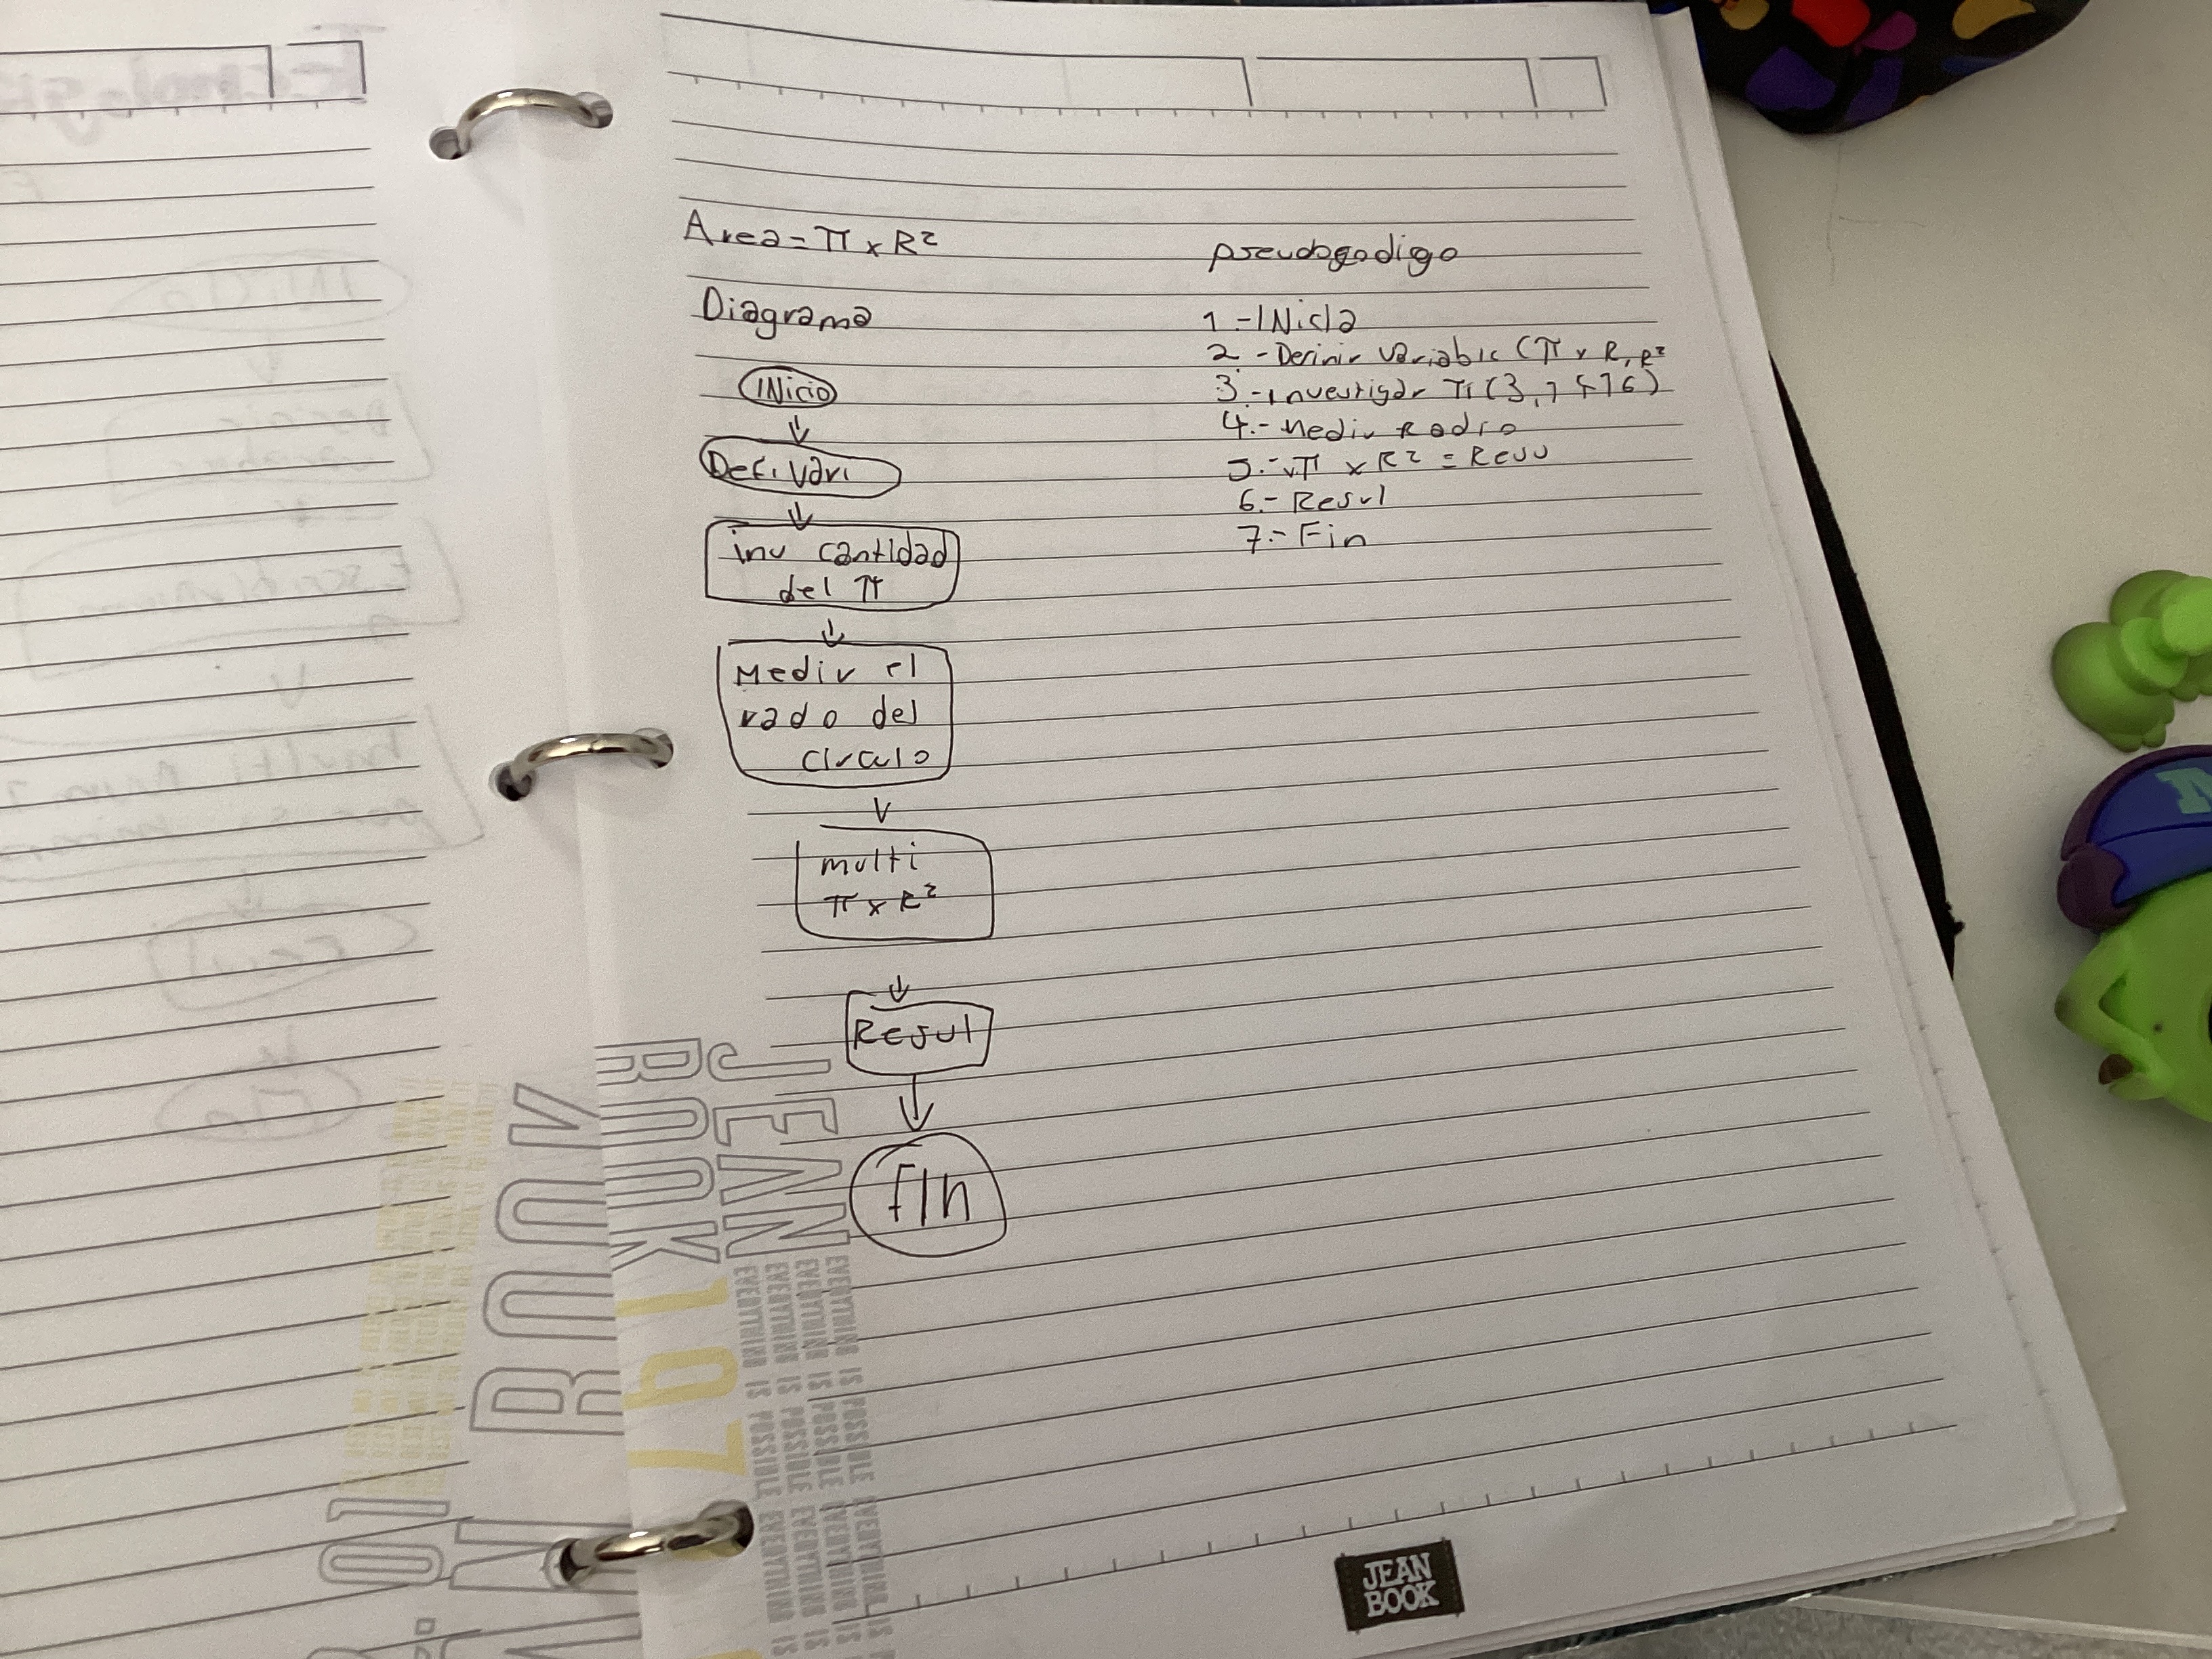 Area = π x R²
Diagrama
INicio
Defi. Vari
inv cantidad
del π
Medir el
rado del
circulo
multi
π x R²
Resul
FIn
pseudogodigo
1.-INicia
2.-Definir variable (π x R, R²
3.-Investigar π (3,1416)
4.-Medir Radio
5.- π x R² = Resu
6.- Resul
7.- Fin
JEAN
BOOK
197
EVERYTHING IS POSSIBLE EVERYTHING IS
EVERYTHING IS POSSIBLE EVERYTHING IS
EVERYTHING IS POSSIBLE EVERYTHING IS
EVERYTHING IS POSSIBLE EVERYTHING IS
JEAN
BOOK